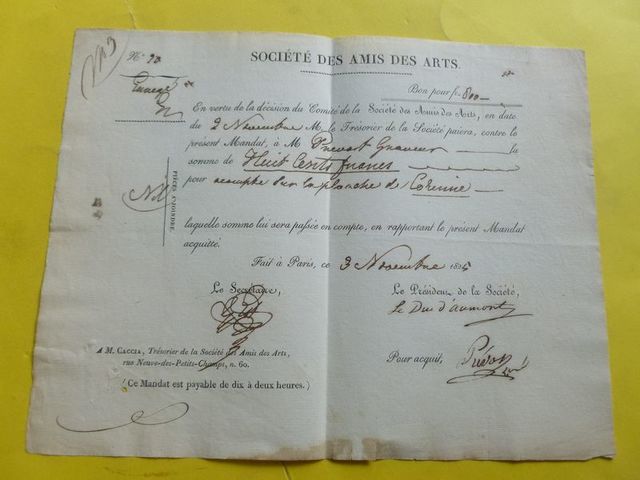 SOCIÉTÉ DES AMIS DES ARTS.
Bon pour fr. 800
En vertu de la décision du Comité de la Société des Amis des Arts, en date
du 2 Novembre M. le Trésorier de la Société paiera, contre le
présent Mandat, à M Prevost Graveur la
somme de Huit Cents francs
pour acompte sur la planche de Corinne
PIÈCES A JOINDRE.
laquelle somme lui sera passée en compte, en rapportant le présent Mandat
acquitté.
Fait à Paris, ce 3 Novembre 1825
Le Secrétaire,
Le Président de la Société,
Le Duc d'aumont
A M. CACCIA, Trésorier de la Société des Amis des Arts,
rue Neuve-des-Petits-Champs, n. 60.
Pour acquit, Prévost
(Ce Mandat est payable de dix à deux heures.)